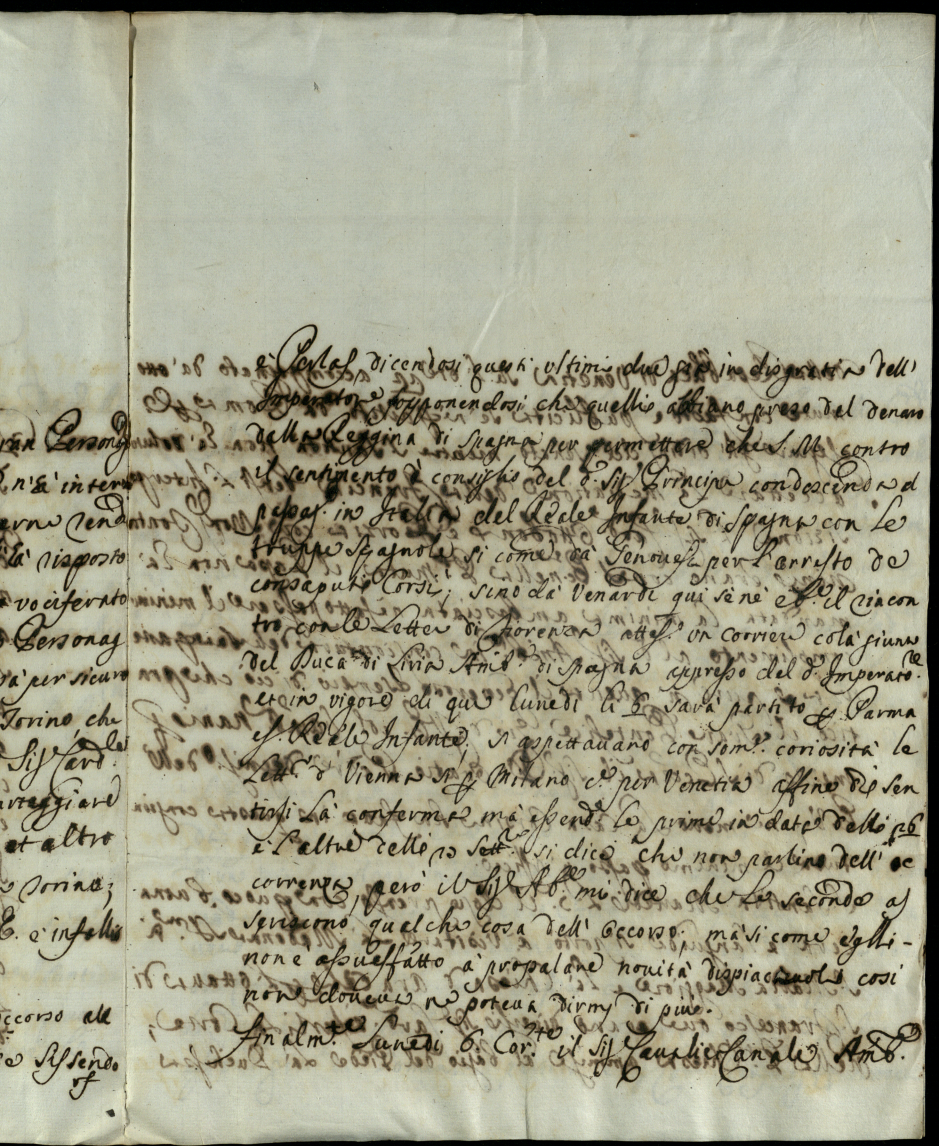 ran Personag
n'è intern
erne rend
là risposto
vociferato
Personag
rà per sicuro
Torino, che
Sig Card.le
arteggiare
et altro
Torino;
E. è infalli
occorso all
e Sig sendo
è dicendosi questi ultimi due già in disgratia dell'
Imperatore supponendosi che quelli abbiano preso del denaro
dalla Reggina di Spagna per permettere che S. M. contro
il sentimento è consiglio del d.o Sig Principe condescenda al
passag. in Italia del Reale Infante di Spagna con le
truppe Spagnole si come da Genovesi per l'arresto de
consaputi Corsi; sino da Venardi qui sene il riscon
tro con le Lettere di Fiorenza un corriere cola giunto
del Duca di Liria Amb.e di Spagna appresso del d.o Imperato.re
et in vigore di que lunedi li 6 sarà partito p Parma
Reale Infante; si aspettavano con som.a coriosità le
Lett.e d Vienna si p Milano c.e per Venetia affine di sen
tirsi la conferma mà essend.o le prime in data delli 26
e l'altre delli Sett.e si dice che non parlino dell' oc
correnza, però il Sig Ab.e mi dice che le seconde as
seriscono qualche cosa dell' occorso; mà si come egli
non e assueffatto à propalare novità dispiacevoli cosi
non doveva ne poteva dirmj di più.
Finalm.te Lunedi 6 Cor.te il Sig Cavalier Canale Amb.